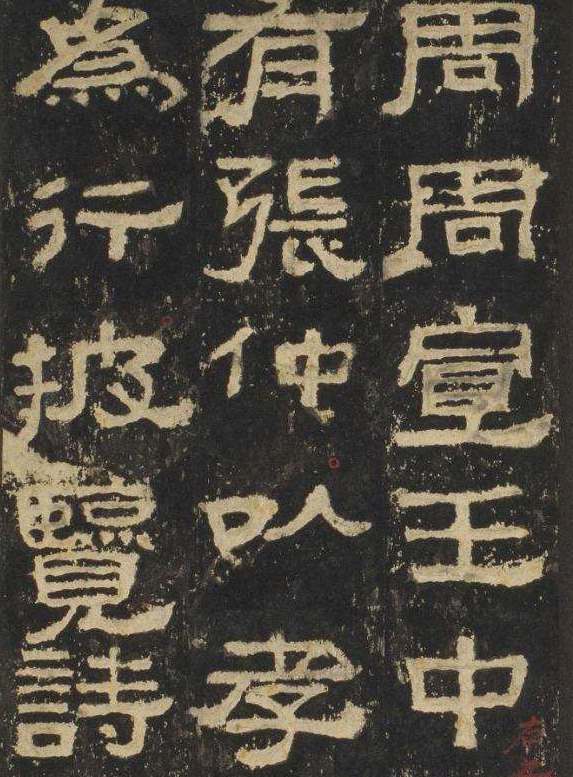 周周宣王中
有張仲㕥孝
為行披覽詩